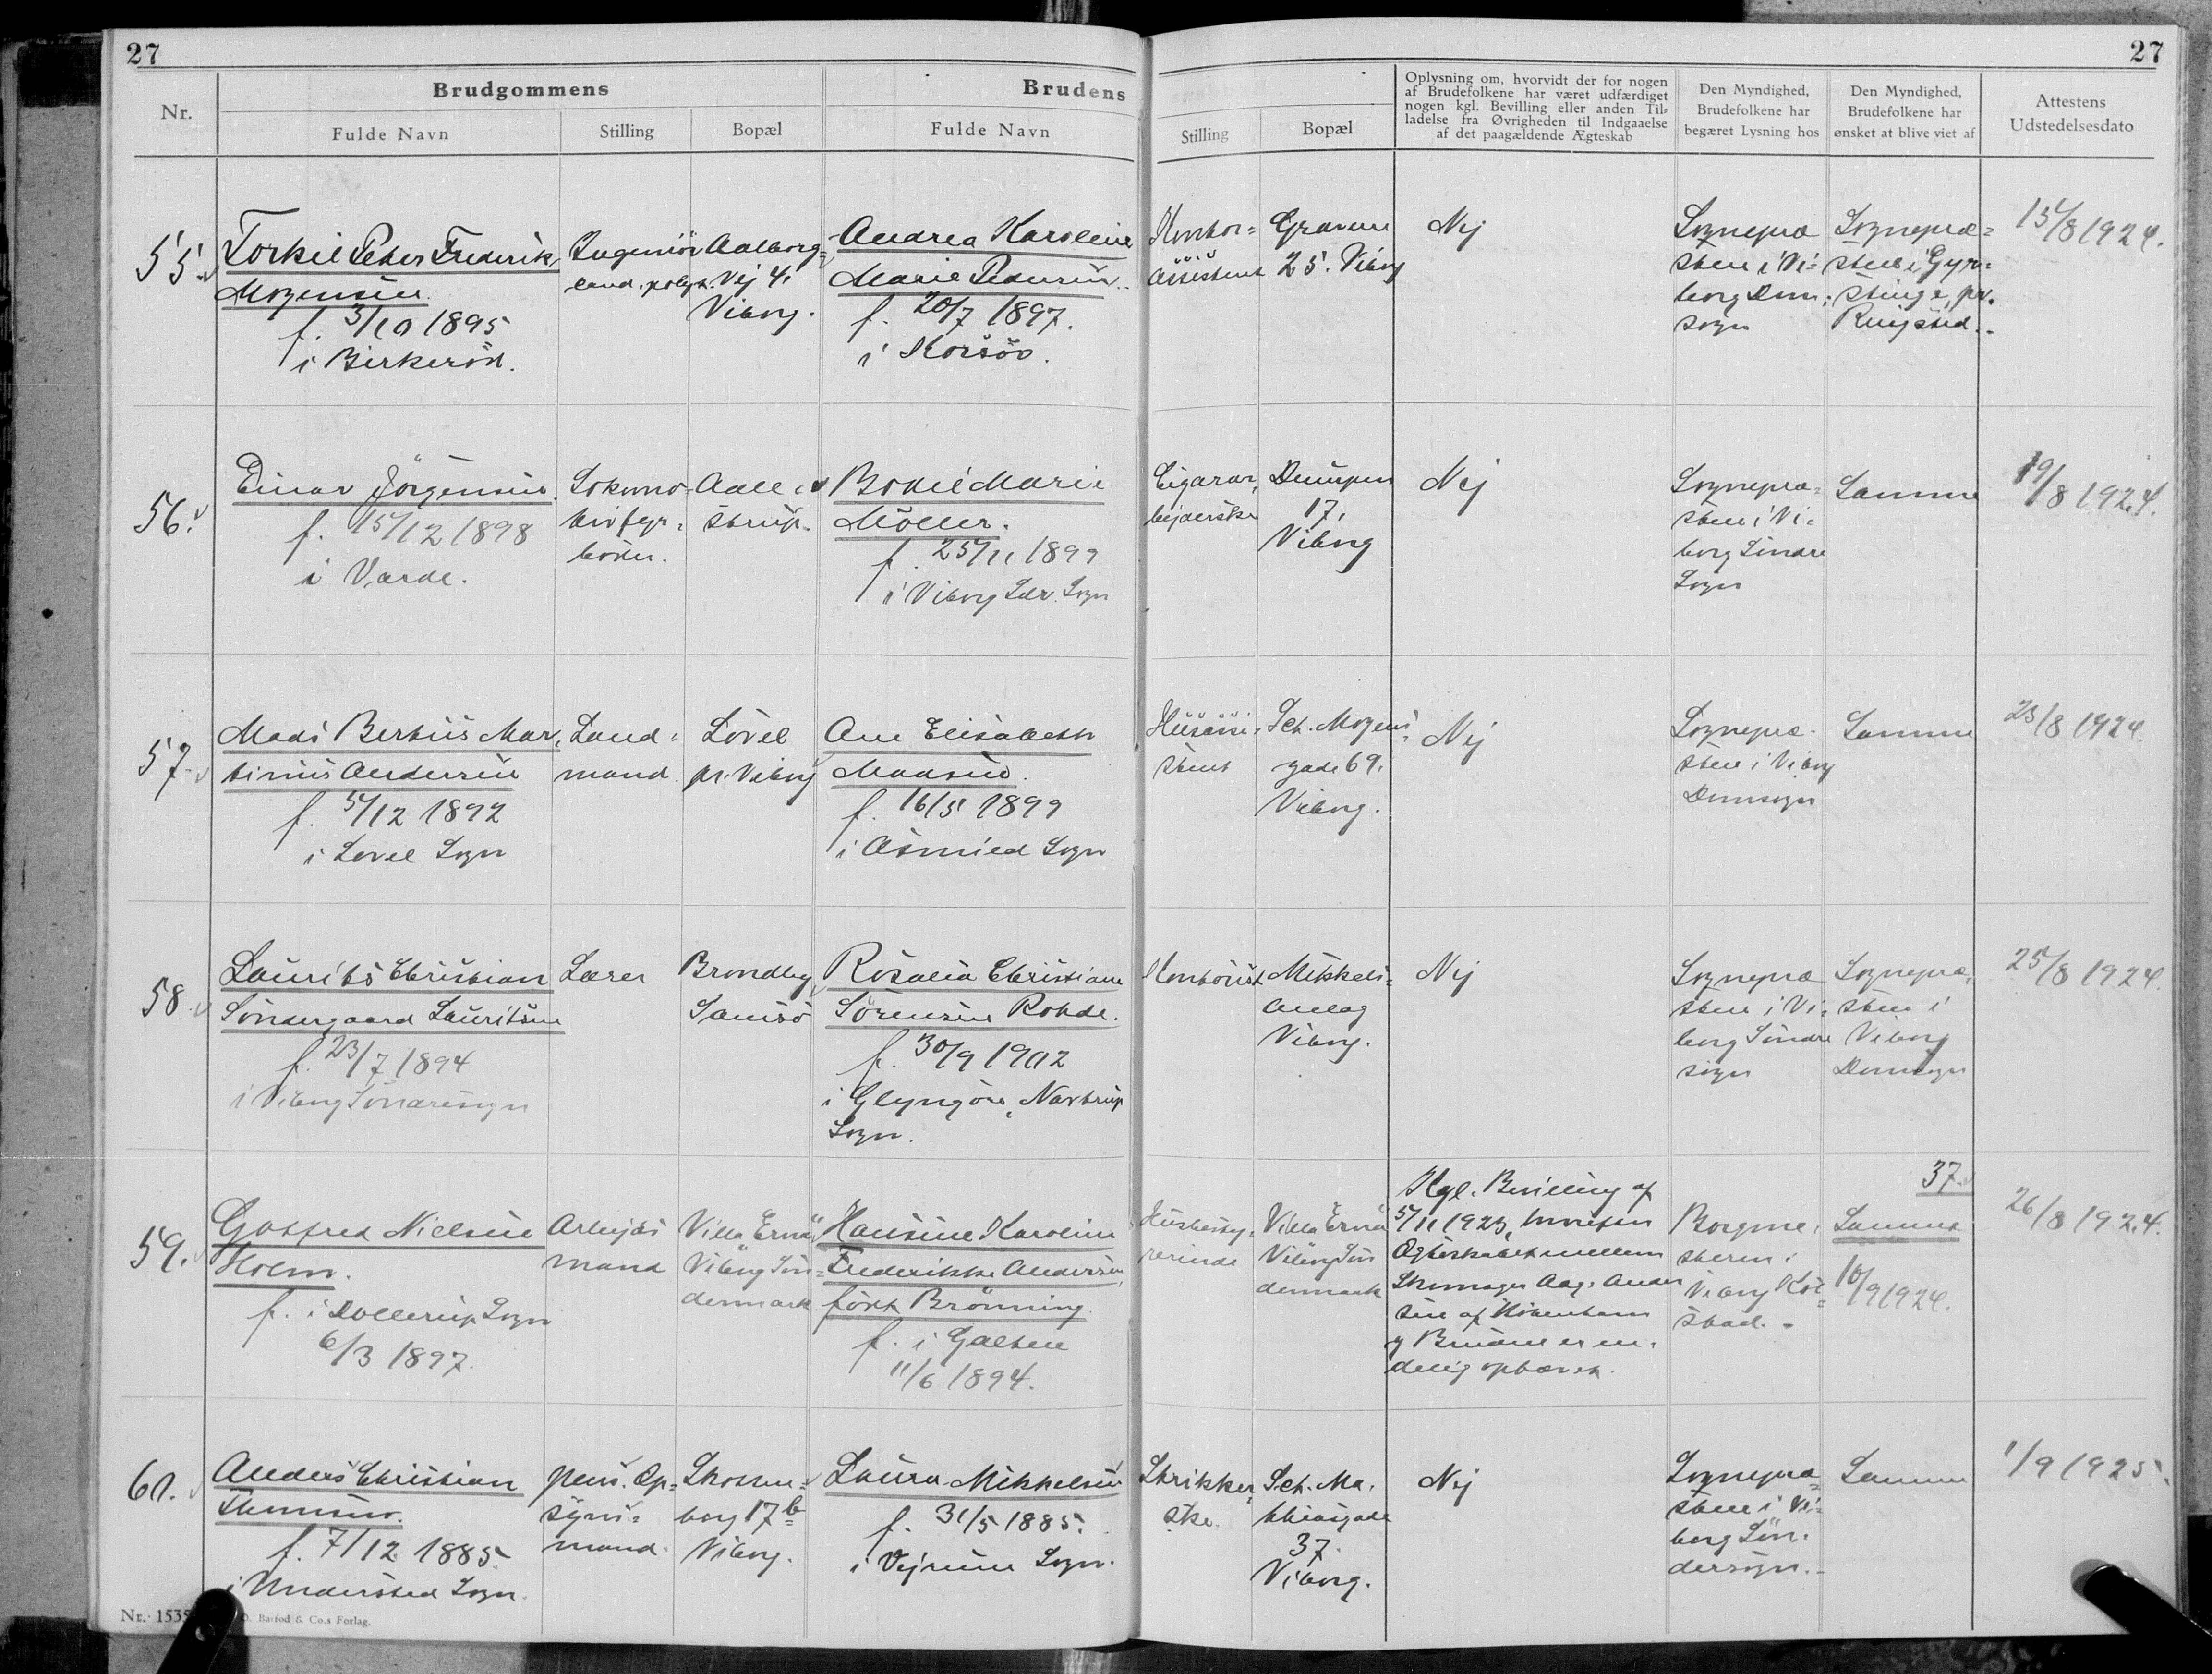 27
27
Nr.
Brudgommens
Brudens
Fulde Navn
Stilling
Bopæl
Fulde Navn
Stilling
Bopæl
Oplysning om, hvorvidt der for nogen
af Brudefolkene har været udfærdiget
nogen kgl. Bevilling eller anden Til-
ladelse fra Øvrigheden til Indgaaelse
af det paagældende Ægteskab
Den Myndighed,
Brudefolkene har
begæret Lysning hos
Den Myndighed,
Brudefolkene har
ønsket at blive viet af
Attestens
Udstedelsesdato
55.
Torkil Peter Frederik
Mogensen.
f. 3/10 1895
i Birkeröd.
Ingeniör
cand. polyt.
Aalborg-
Vej 4.
Viborg.
Andrea Karoline
Marie Pedersen.
f. 20/7 1897.
i Korsör.
Kontor-
assistent
Graven
25. Viborg
Nej
Sognepræ
sten i Vi-
borg Dom-
sogn
Sognepræ-
sten i Gyr-
stinge, pr.
Ringsted.
15/8 1924.
56.
Einar Jörgensen
f. 15/12 1898
i Varde.
Lokomo-
tivfyr-
böder.
Aale-
strup.
Bodil Marie
Möller.
f. 25/11 1899
i Viborg Sdr. Sogn
Cigarar-
bejderske
Dumpen
17,
Viborg
Nej
Sognepræ-
sten i Vi-
borg Söndre
Sogn
Samme
19/8 1924.
57.
Mads Bertius Mar-
tinus Andersen
f. 5/12 1892
i Lövel Sogn
Land-
mand.
Lövel
pr. Viborg
Ane Elisabeth
Madsen.
f. 16/5 1899
i Asmild Sogn
Husassi-
stent
Sct. Mogens-
gade 69.
Viborg.
Nej
Sognepræ-
sten i Viborg
Domsogn
Samme
23/8 1924.
58.
Laurits Christian
Söndergaard Lauritsen
f. 23/7 1894
i Viborg Söndresogn
Lærer
Brundby
Samsö
Rosalia Christiane
Sörensen Rohde.
f. 30/9 1902
i Glyngöre, Nautrup
Sogn.
Kontorist
Mikkels-
Anlæg
Viborg.
Nej
Sognepræ
sten i Vi-
borg Söndre
sogn
Sognepræ-
sten i
Viborg
Domsogn
25/8 1924.
59.
Gotfred Nielsen
Holm.
f. i Dollerup Sogn
6/3 1897.
Arbejds
mand
Villa "Erna"
Viborg Sön-
dermark
Hansine Karoline
Frederikke Andersen,
födt Brönning.
f. i Galten
11/6 1894.
Husbesty-
rerinde
Villa Erna
Viborg Sön
dermark
Kgl. Bevilling af
5/11 1923, hvorefter
Ægteskabet mellem
Skomager Aage Ander
sen af Köbenhavn
og Bruden er en-
delig ophævet.
Borgme-
steren i
Viborg Köb-
stad.
37.
Samme
10/9 1924.
26/8 1924.
60.
Anders Christian
Thomsen.
f. 7/12 1885
i Understed Sogn.
pens. Op-
syns-
mand.
Skotten-
borg 17 b
Viborg.
Laura Mikkelsen
f. 31/5 1885.
i Vejrum Sogn.
Strikker-
ske.
Sct. Ma-
thiasgade
37.
Viborg.
Nej
Sognepræ-
sten i Vi-
borg Sön-
dersogn.
Samme
1/9 1925.
Nr. 1535
O. Barfod & Co.s Forlag.